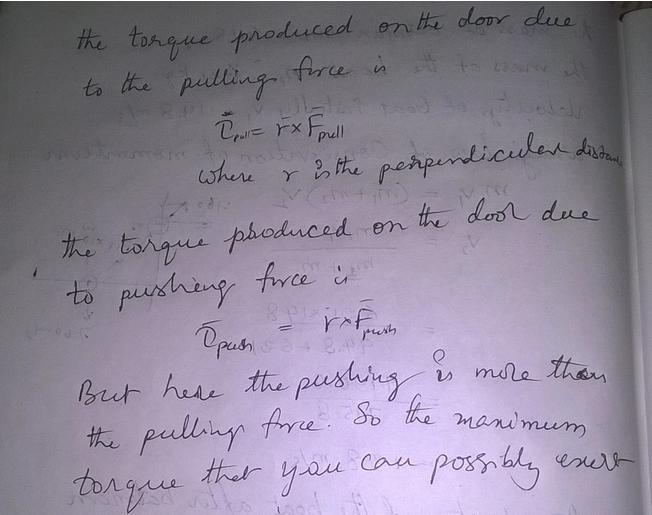 the torque produced on the door due
to the pulling force is
τ̄pull = r̄ × F̄pull
where r is the perpendicular distan
the torque produced on the door due
to pusheng force is
τ̄push = r̄ × F̄push
But here the pushing is more than
the pulling force. So the maximum
torque that you can possibly exert